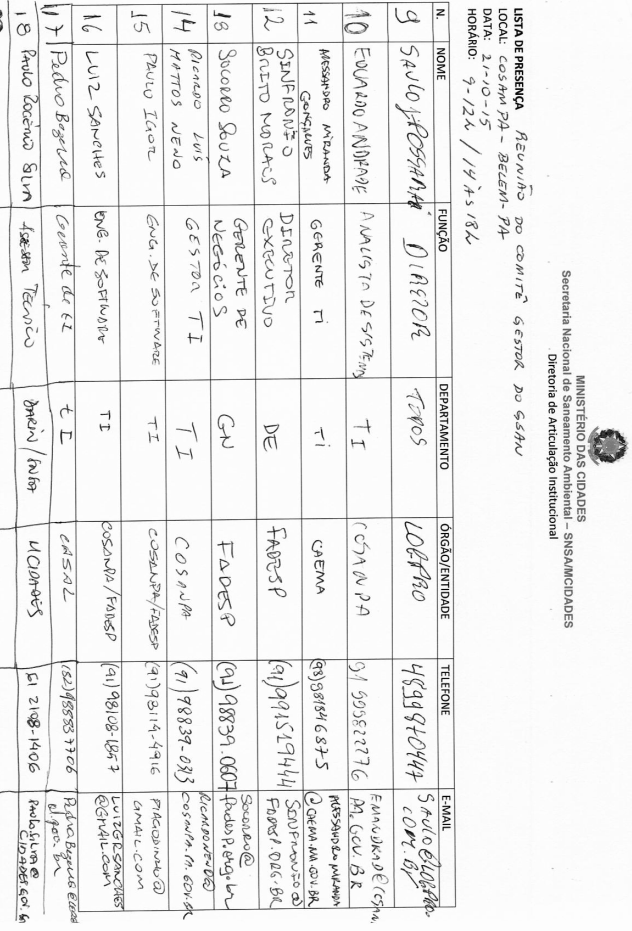 MINISTÉRIO DAS CIDADES
Secretaria Nacional de Saneamento Ambiental – SNSA/MCIDADES
Diretoria de Articulação Institucional
LISTA DE PRESENÇA REUNIÃO DO COMITÊ GESTOR DO GSAN
LOCAL: COSAMPA - BELEM-PA
DATA: 21-10-15
HORÁRIO: 9-12h / 14 ÀS 18h
N. NOME FUNÇÃO DEPARTAMENTO ÓRGÃO/ENTIDADE TELEFONE E-MAIL
9 SAULO DIRETOR TODOS 4899970447 SAULO@ COM.BR
10 EDUARDO ANDRADE ANALISTA DE SISTEMAS TI COSANPA PA.GOV.BR
11 MESSANDRO MIRANDA GONÇALVES GERENTE TI TI CAEMA (98) MESSANDRO.MIRANDA @CAEMA.MA.GOV.BR
12 SINFRONIO BRITO MORAES DIRETOR EXECUTIVO DE FADESP (91)991519444 SINFRONIO@ FADESP.ORG.BR
18 SOCORRO SOUZA GERENTE DE NEGÓCIOS GN FADESP (91)98839.0607 SOCORRO@ fadesp.org.br
14 RICARDO LUÍS MATTOS NENO GESTOR TI TI COSANPA (91)98839-0313 RICARDO.NENO@ COSANPA.PA.GOV.BR
15 PAULO IGOR ENG. DE SOFTWARE TI COSANPA/FADESP (91)98114-4916 GMAIL.COM
16 LUIZ SANCHES ENG. DE SOFTWARE TI COSANPA/FADESP (91)98108-1857 LUIZGRSANCHES @GMAIL.COM
17 Pedro Bezerra Gerente de TI TI CASAL (82)988337706 al.gov.br
18 PAULO ROGÉRIO SILVA ASSESSOR TÉCNICO MCIDADES 61 2108-1406 PAULO.SILVA@ CIDADES.GOV.BR